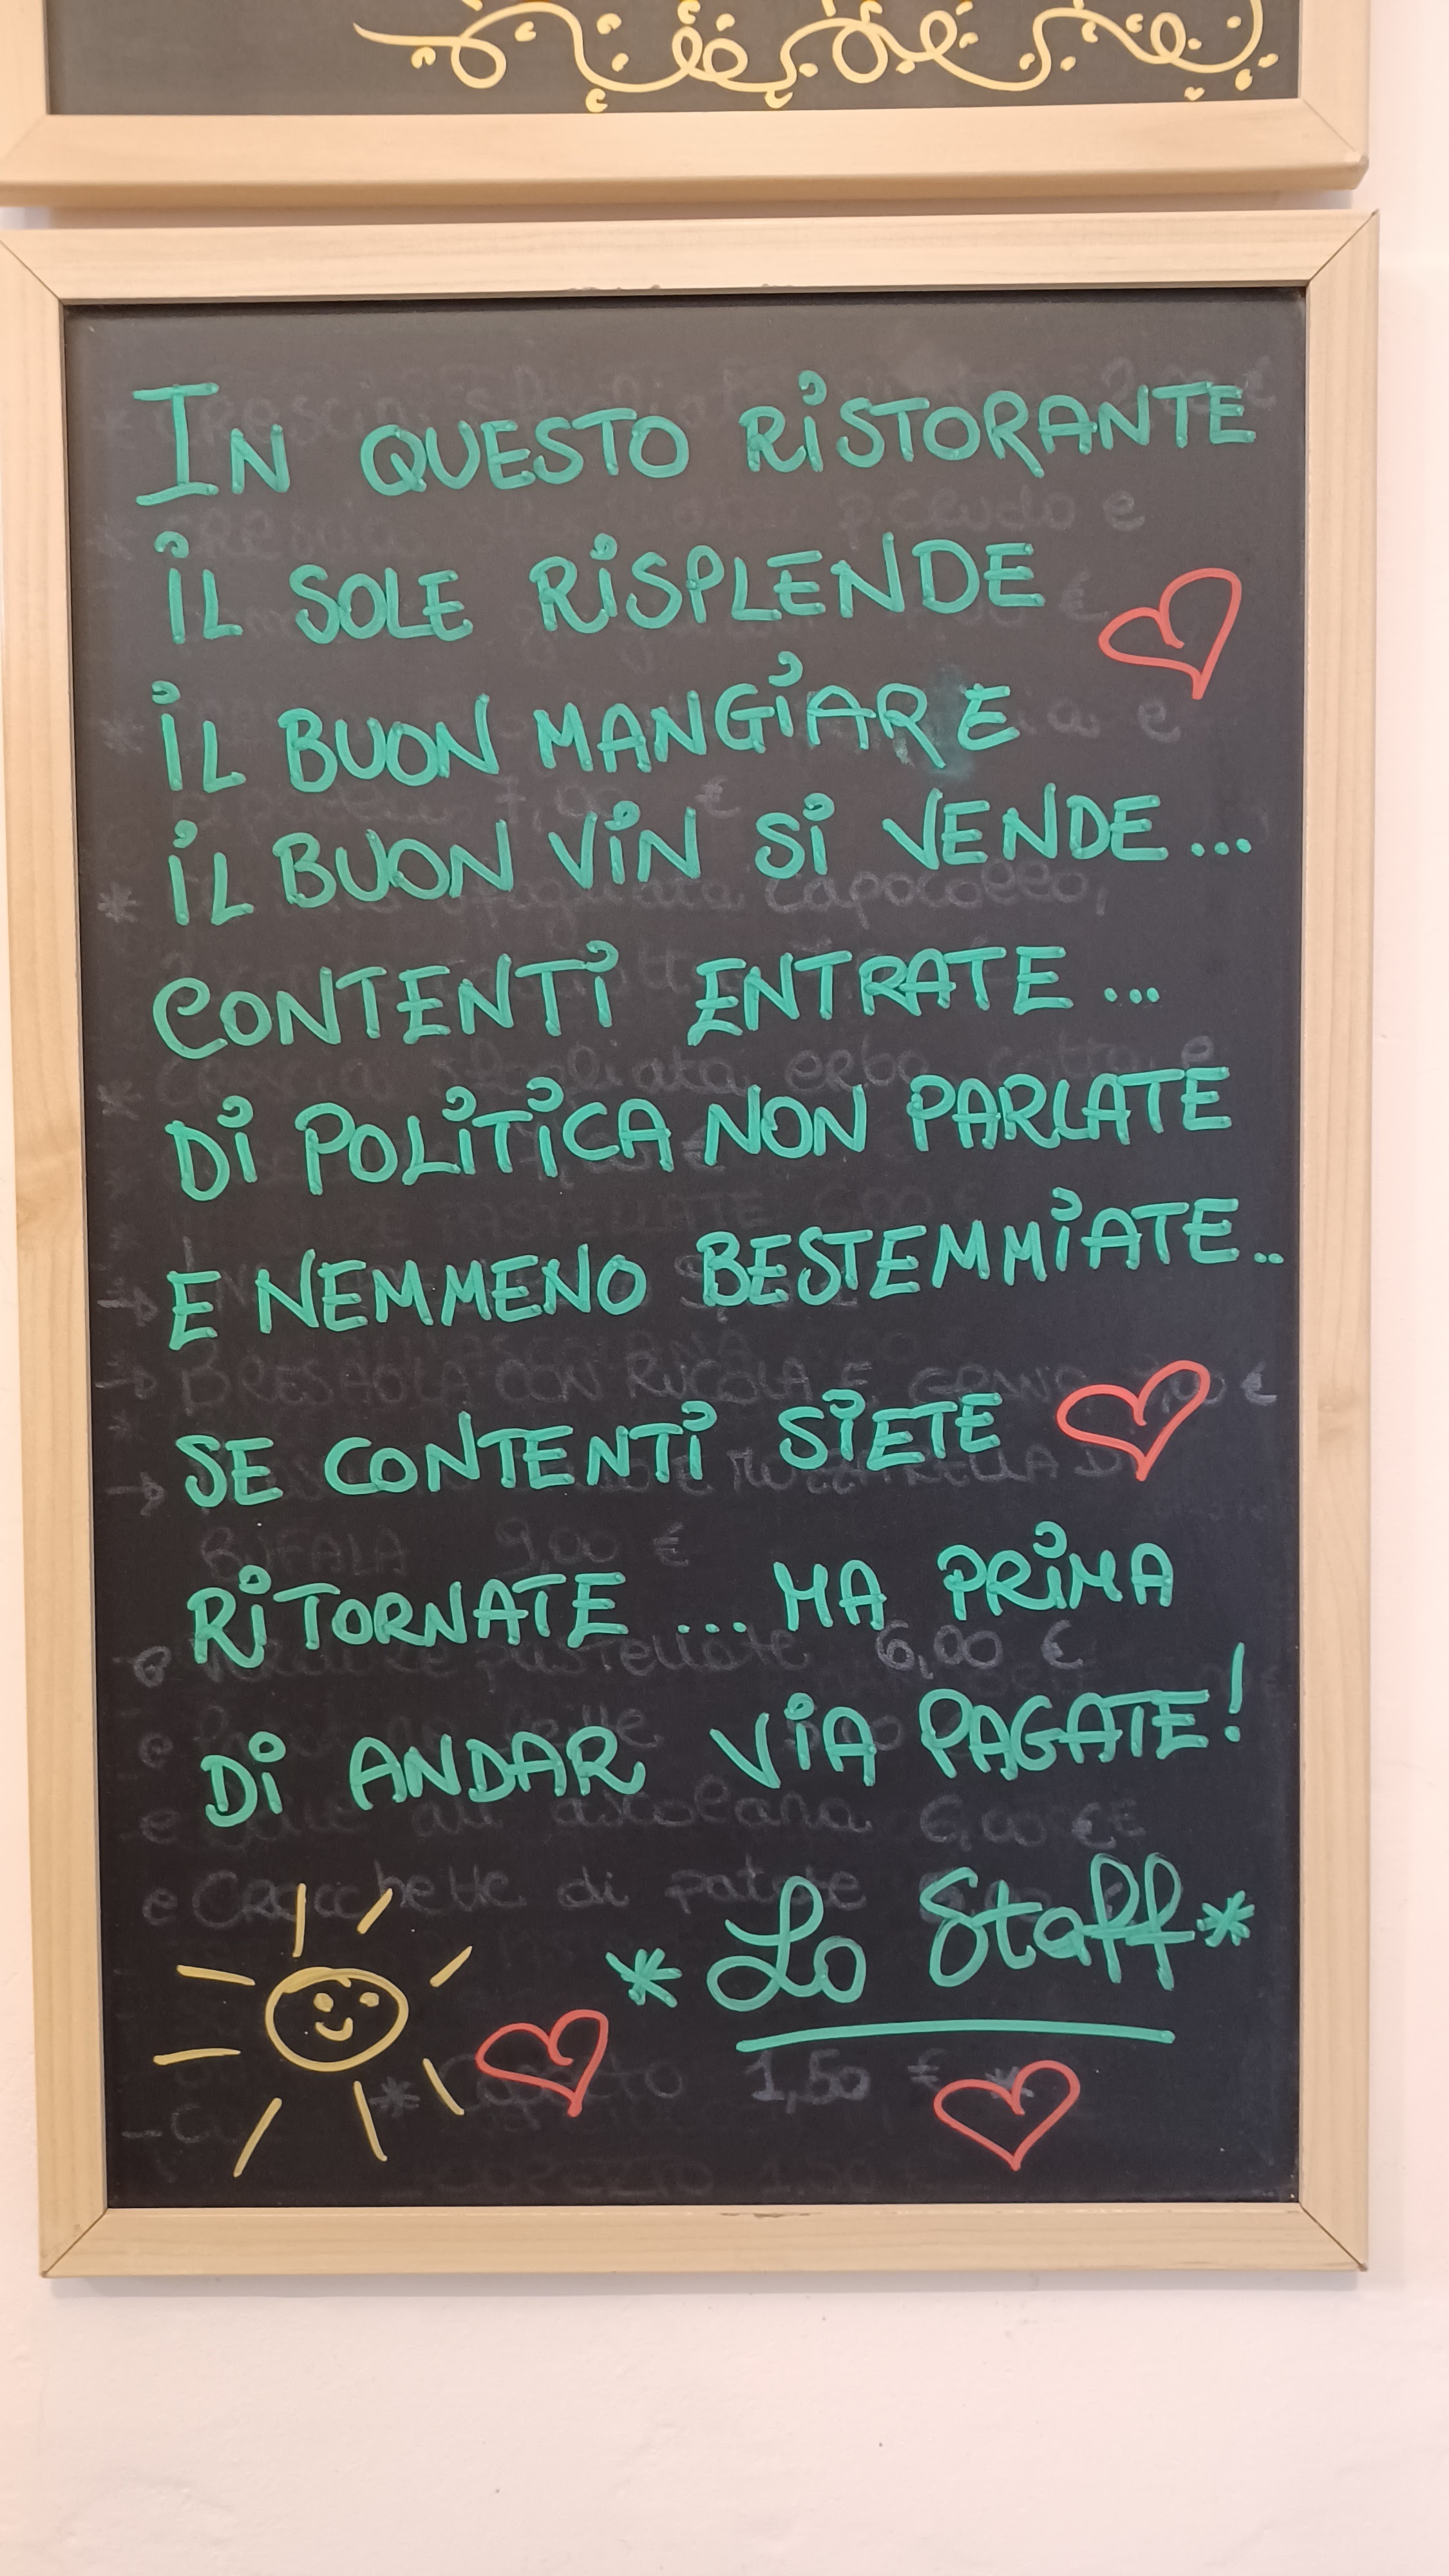 In QUESTO RiSTORANTE
iL SOLE RiSPLENDE
iL BUON MANGiARE
iL BUON ViN Si VENDE...
CONTENTi ENTRATE...
Di POLiTiCA NON PARLATE
E NEMMENO BESTEMMiATE..
SE CONTENTi SiETE
RiTORNATE... MA PRiMA
Di ANDAR ViA PAGATE!
* Lo Staff *